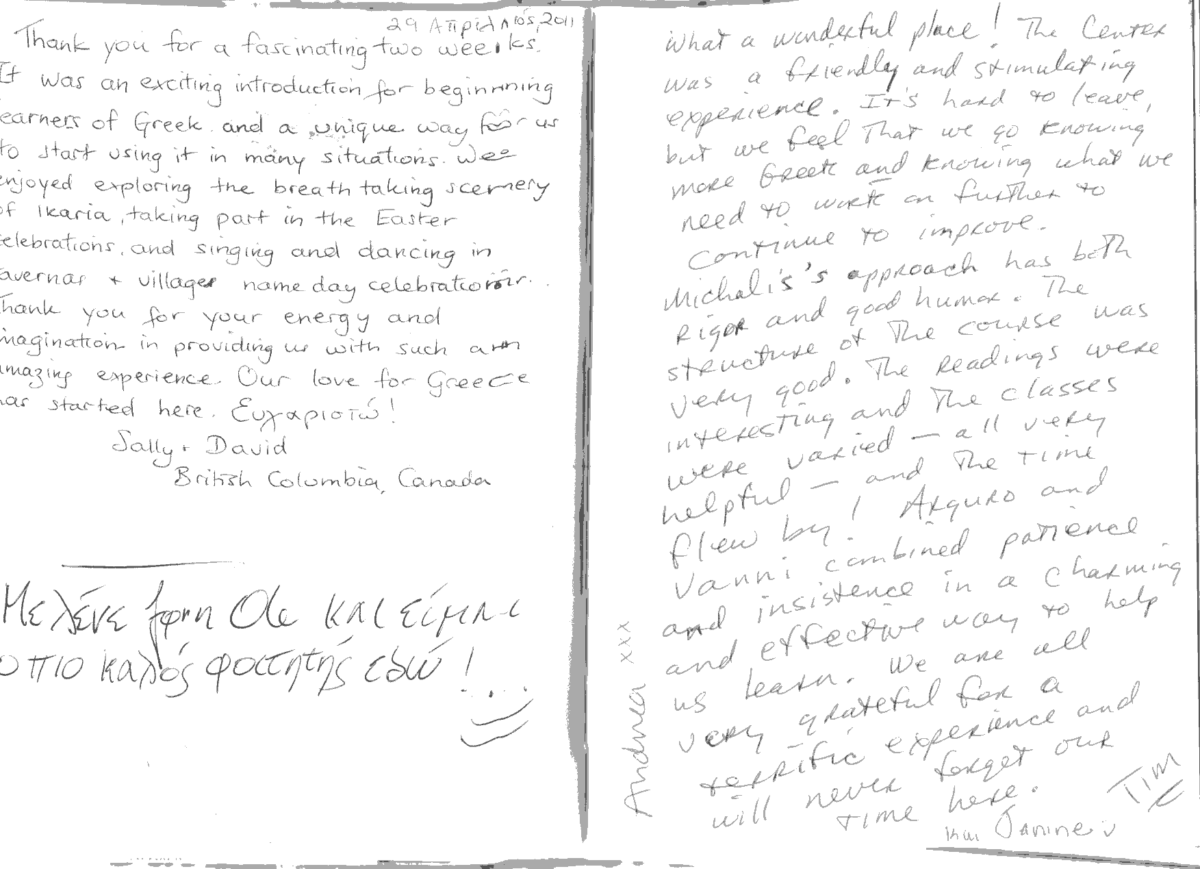 29 Απριλιος, 2011
Thank you for a fascinating two weeks.
It was an exciting introduction for beginning
earners of Greek and a unique way for us
to start using it in many situations. Wee
enjoyed exploring the breath taking scernery
of Ikaria, taking part in the Easter
elebrations, and singing and dancing in
avernas + villages name day celebrations.
Thank you for your energy and
magination in providing us with such an
amazing experience. Our love for Greece
has started here. Ευχαριστώ!
Sally + David
British Columbia, Canada
Με λένε Ole και είμαι
ο πιο καλός φοιτητής εδώ!...
What a wonderful place! The Center
was a friendly and stimulating
experience. It's hard to leave,
but we feel that we go knowing
more Greek and knowing what we
need to work on further to
continue to improve.
Michalis's approach has both
rigor and good humor. The
structure of the course was
very good. The readings were
interesting and the classes
were varied – all very
helpful – and the time
flew by! Arguro and
Vanni combined patience
and insistence in a charming
and effective way to help
us learn. We are all
very grateful for a
terrific experience and
will never forget our
time here.
Tim
και Janine
Andrea xxx